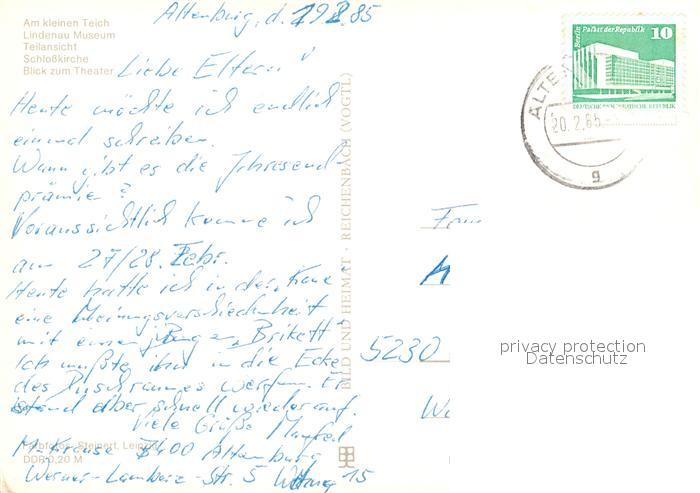 Am kleinen Teich
Lindenau Museum
Teilansicht
Schloßkirche
Blick zum Theater
Altenburg, d. 19.2.85
Liebe Eltern!
Heute möchte ich endlich
einmal schreiben.
Wann gibt es die Jahresend
prämie?
Voraussichtlich komme ich
am 27/28. Febr.
Heute hatte ich in der
eine Meinungsverschiedenheit
mit einem jungen "Brikett"
Ich mußte ihn in die Ecke
des Duschraumes werfen. Er
stand aber schnell wieder auf.
Viele Grüße Manfred
M. Krause 7400 Altenburg
Werner-Lamberz-Str. 5 15
Farbfotos: Steinert, Leipzig
DDR 0,20 M
BILD UND HEIMAT · REICHENBACH (VOGTL)
Berlin Palast der Republik 10
DEUTSCHE DEMOKRATISCHE REPUBLIK
ALTE
20.2.85.
g
5230
privacy protection
Datenschutz